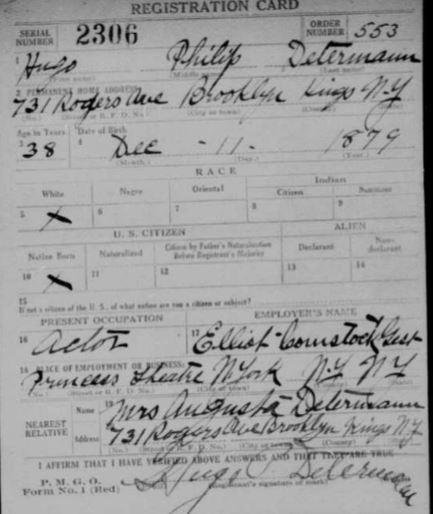 REGISTRATION CARD
SERIAL NUMBER 2306 ORDER NUMBER 553
1 Hugo Philip Determann
(Middle name) (Last name)
2 PERMANENT HOME ADDRESS
731 Rogers Ave Brooklyn Kings N-Y
(No.) (Street or R. F. D. No.) (City or town) (County) (State)
Age in Years Date of Birth
3 38 4 Dec - 11 - 1879
(Month.) (Day.) (Year.)
RACE
White Negro Oriental Indian
Citizen
5 X 6 7 8 9
U. S. CITIZEN ALIEN
Native Born Naturalized Citizen by Father's Naturalization Before Registrant's Majority Declarant Non-declarant
10 X 11 12 13 14
15
If not a citizen of the U. S., of what nation are you a citizen or subject?
PRESENT OCCUPATION EMPLOYER'S NAME
16 Actor 17 Elliot-Comstock Gest
18 PLACE OF EMPLOYMENT OR BUSINESS
Princess Theatre N York N-Y NY
(No.) (Street or R. F. D. No.) (City or town) (County) (State)
NEAREST RELATIVE
Name 19 Mrs Augusta Determann
Address 731 Rogers Ave Brooklyn Kings NY
(No.) (Street or R. F. D. No.) (City or town) (County) (State)
I AFFIRM THAT I HAVE VERIFIED ABOVE ANSWERS AND THAT THEY ARE TRUE
P. M. G. O.
Form No. 1 (Red) Hugo P Determann
(Registrant's signature or mark)